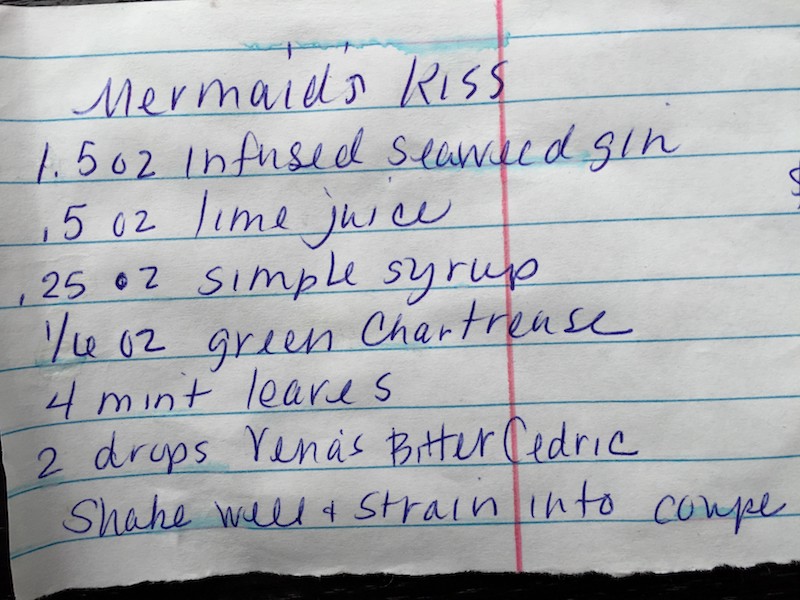 Mermaid's Kiss
1.5 oz infused seaweed gin
.5 oz lime juice
.25 oz simple syrup
1/6 oz green Chartreuse
4 mint leaves
2 drops Vena's Bitter Cedric
Shake well + strain into coupe
$